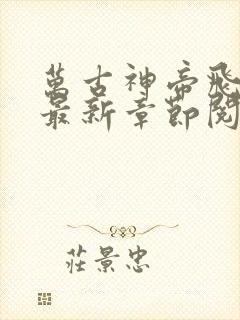 萬古神帝飛
最新章節閱
莊景忠